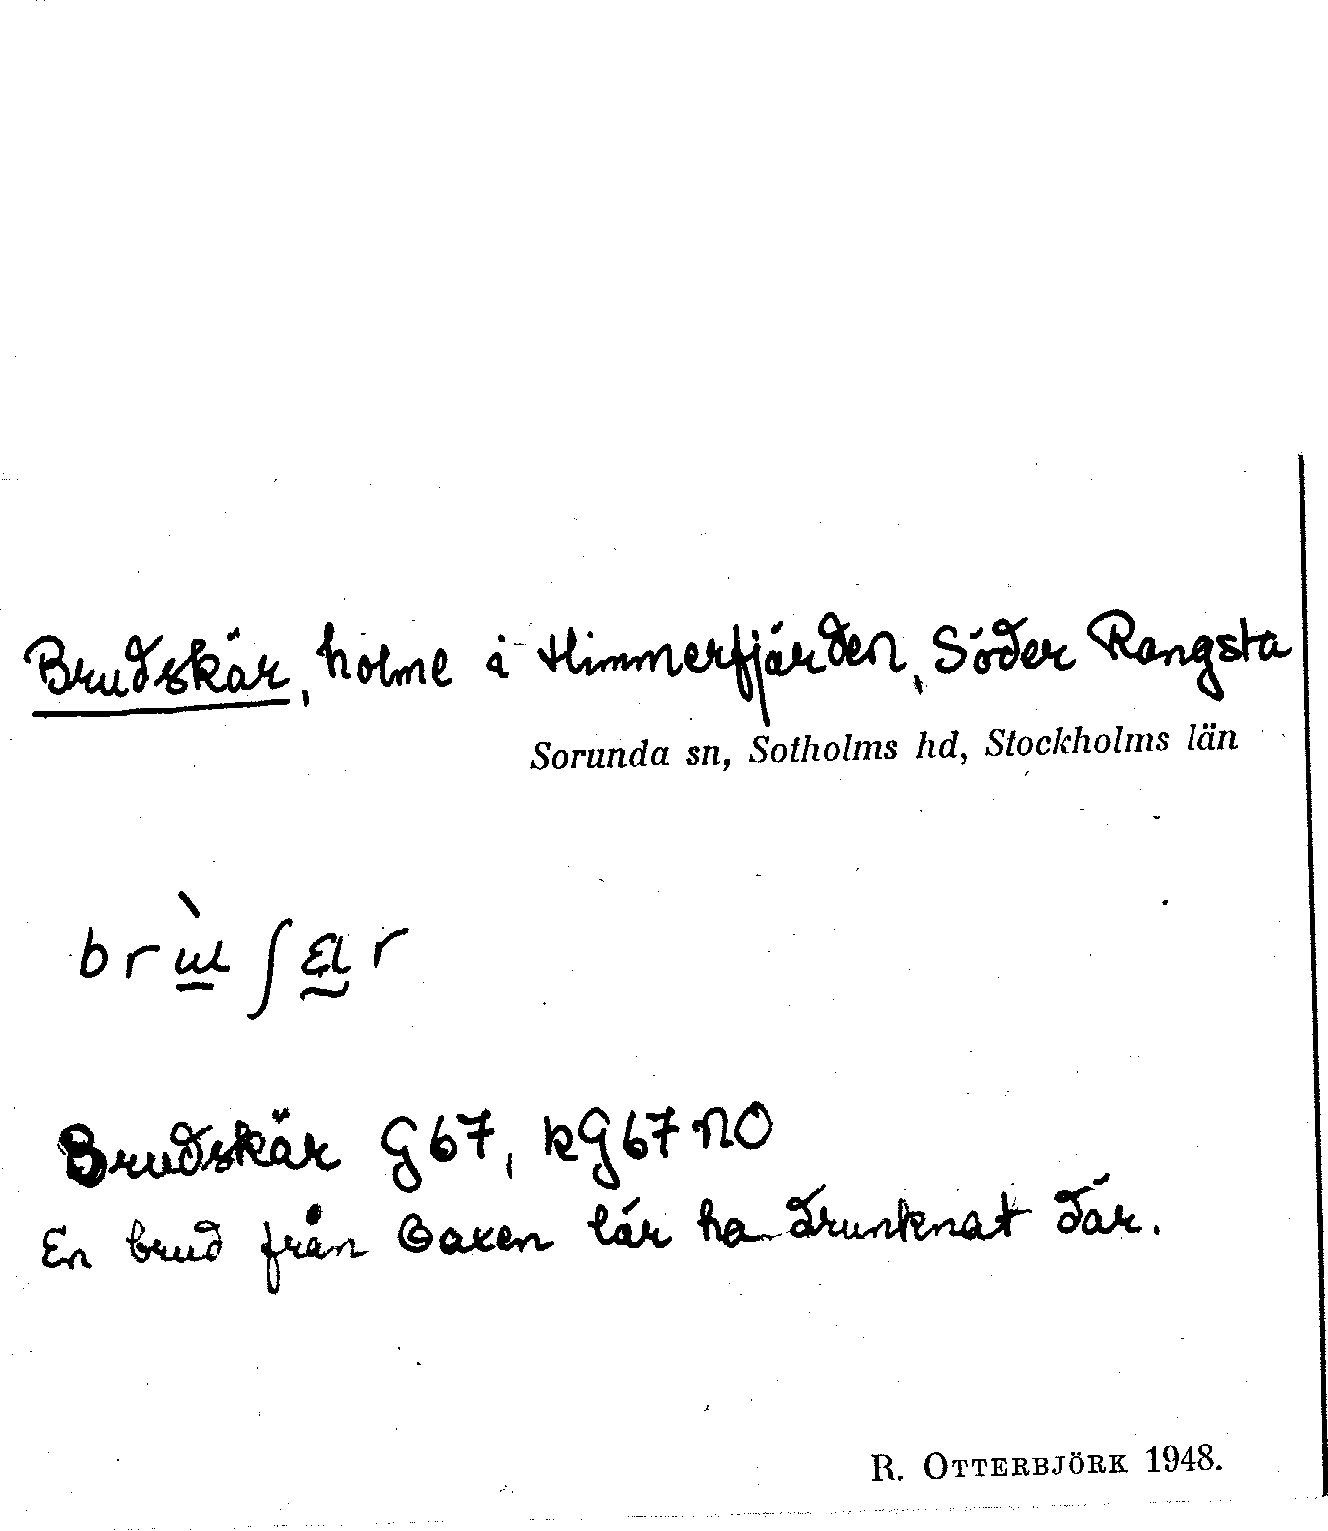 Brudskär, holme i Himmerfjärden, Söder Rangsta
Sorunda sn, Sotholms hd, Stockholms län
Brudskär G67, kG67 NO
En brud från Oaxen lär ha drunknat där.
R. OTTERBJÖRK 1948.